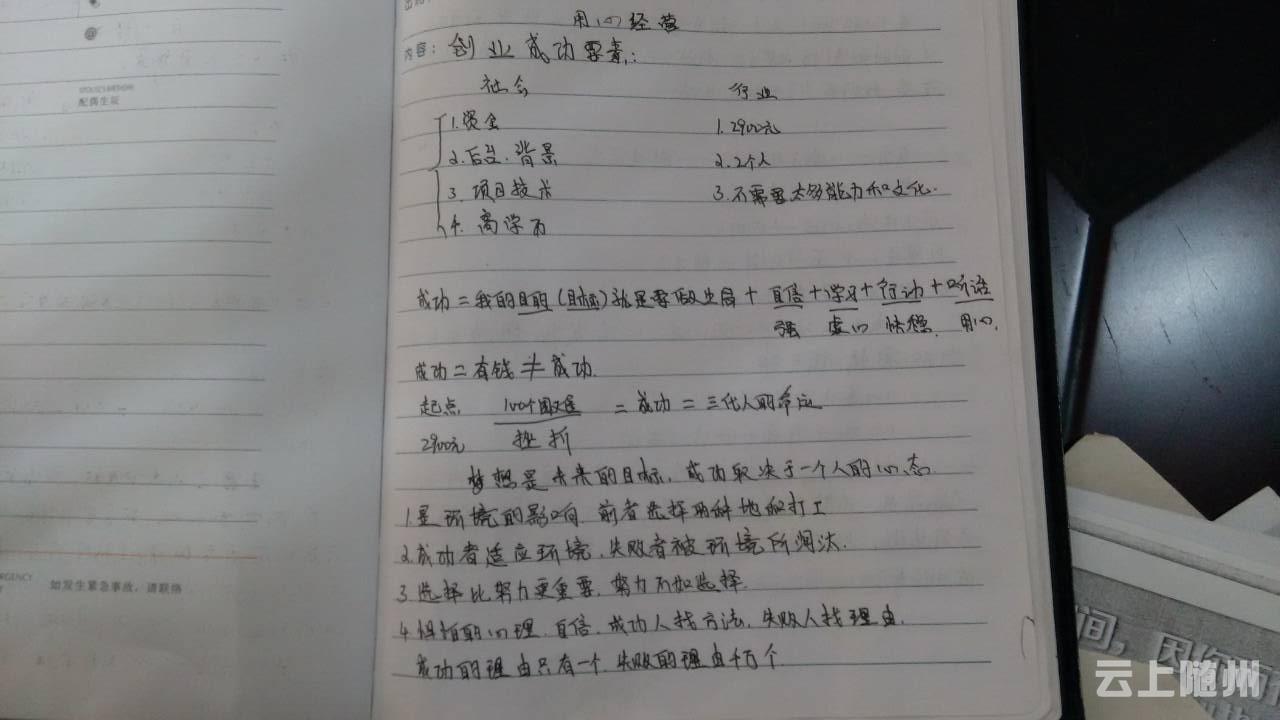 @
配偶生辰
如发生紧急事故，请联络
RGENCY
用心经营
内容：创业成功要素：
社会 行业
1.资金 1.2900元
2.后台.背景 2.2个人
3.项目技术 3.不需要太多能力和文化.
4.高学历
成功=我的目的(目标)就是要做生存+自信+学习+行动+听话
强 虚心 快稳. 用心.
成功=有钱≠成功.
起点 100个困难 =成功=三代人的命运
2900元 挫折
梦想是未来的目标，成功取决于一个人的心态.
1.是环境的影响.前者选择两种地的打工
2.成功者适应环境.失败者被环境所淘汰.
3.选择比努力更重要.努力不如选择.
4.惧怕的心理.自信.成功人找方法.失败人找理由.
成功的理由只有一个.失败的理由千万个.
间，因你
云上随州